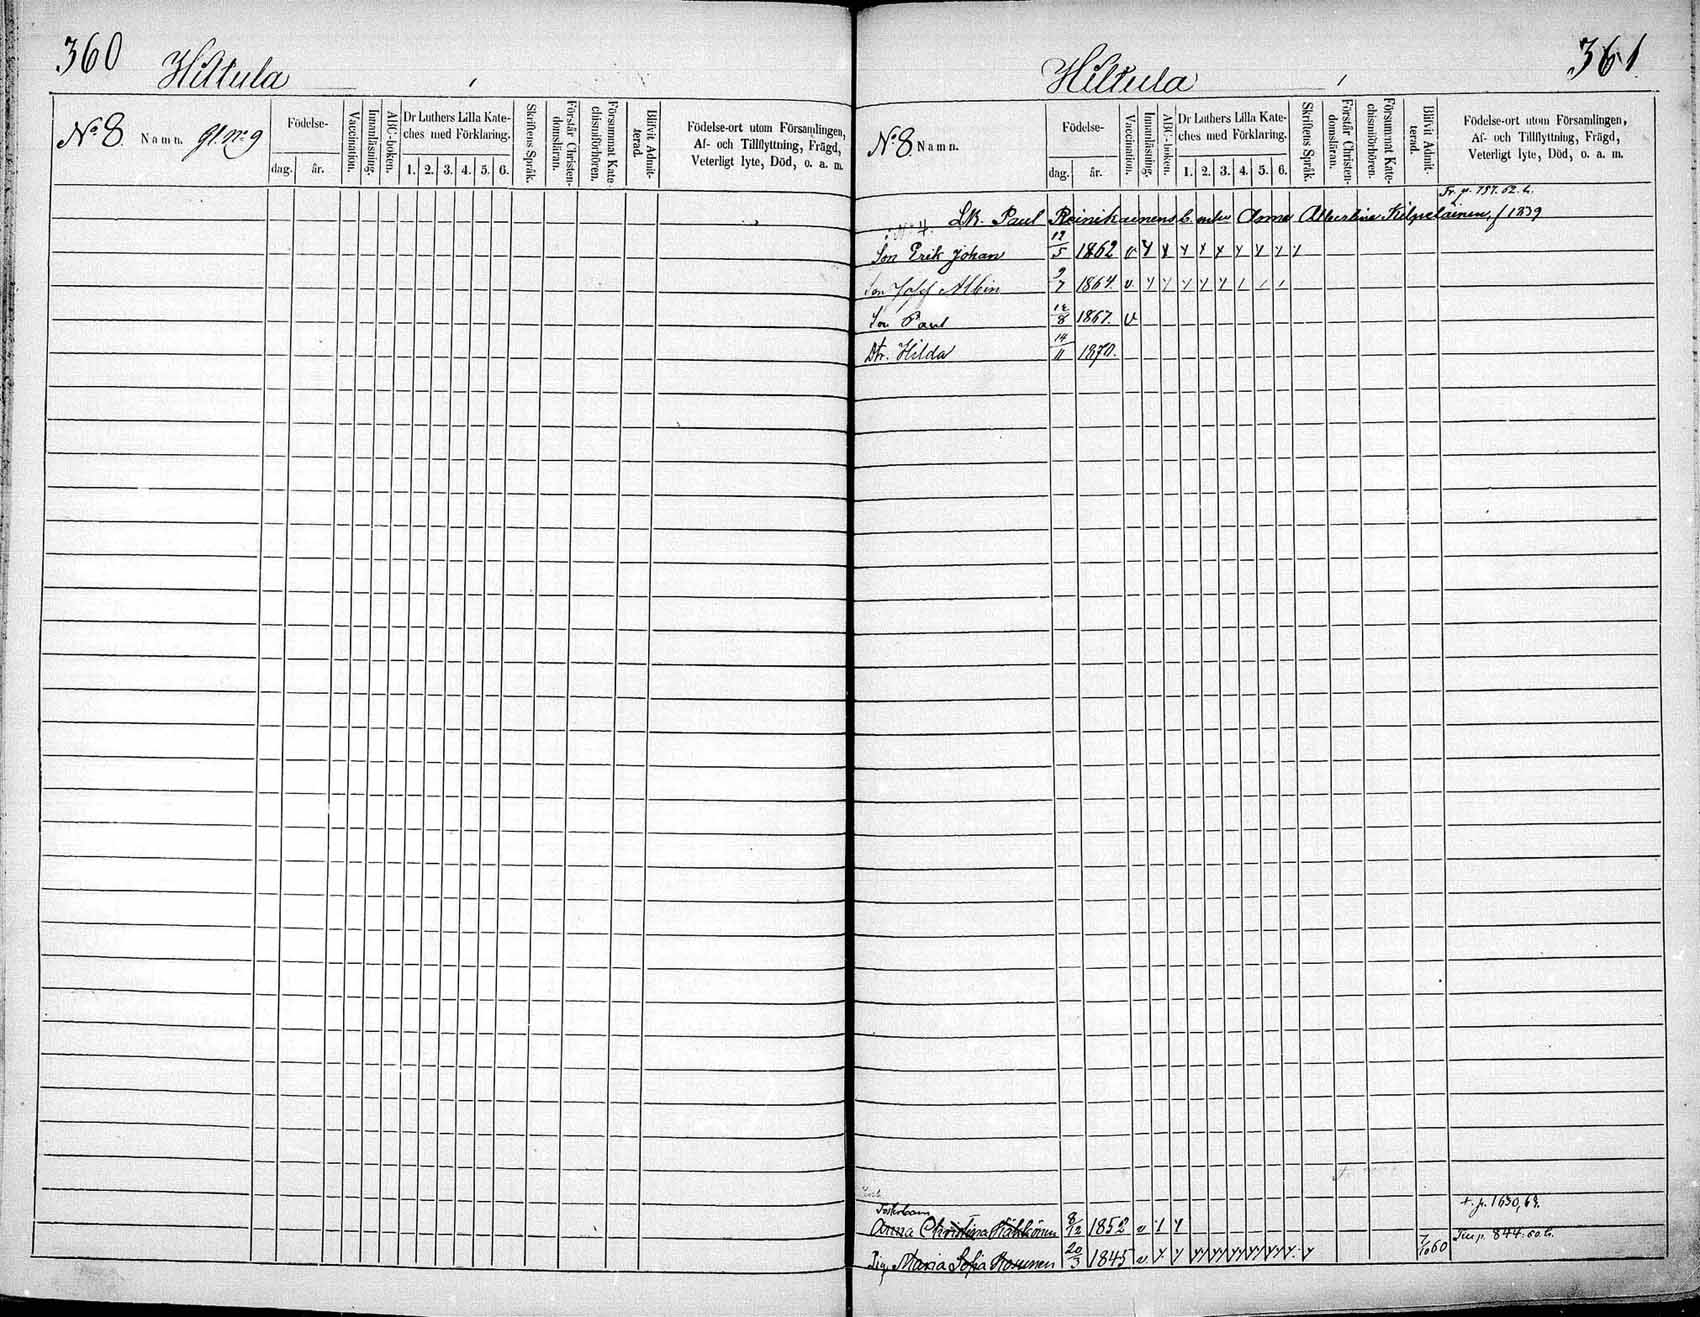 360
Hiltula
No 8. Namn. Gl. No 9
Födelse-
dag. år.
Vaccination.
Innanläsning.
ABC-boken.
Dr Luthers Lilla Kate-
ches med Förklaring.
1. 2. 3. 4. 5. 6.
Skriftens Språk.
Förstår Christen-
domsläran.
Försummat Kate-
chismiförhören.
Blifvit Admit-
terad.
Födelse-ort utom Församlingen,
Af- och Tillflyttning, Frägd,
Veterligt lyte, Död, o. a. m.
361
Hiltula
No 8. Namn.
Födelse-
dag. år.
Vaccination.
Innanläsning.
ABC-boken.
Dr Luthers Lilla Kate-
ches med Förklaring.
1. 2. 3. 4. 5. 6.
Skriftens Språk.
Förstår Christen-
domsläran.
Försummat Kate-
chismiförhören.
Blifvit Admit-
terad.
Födelse-ort utom Församlingen,
Af- och Tillflyttning, Frägd,
Veterligt lyte, Död, o. a. m.
Lk. Paul Reinikainens Anna Albertina Kilpeläinen, f 1839
Son Erik Johan 12/5 1862 v
Son Josef Albin 9/7 1864 v
Son Paul 12/8 1867. v
Dtr. Hilda 14/11 1870.
t. p. 1630, 69.
Fosterbarn
Anna Christina Häkkönen 8/12 1852 v
Pig. Maria Sofia Kosunen 20/3 1845 v 7/10 60 p. 844. 60 b.